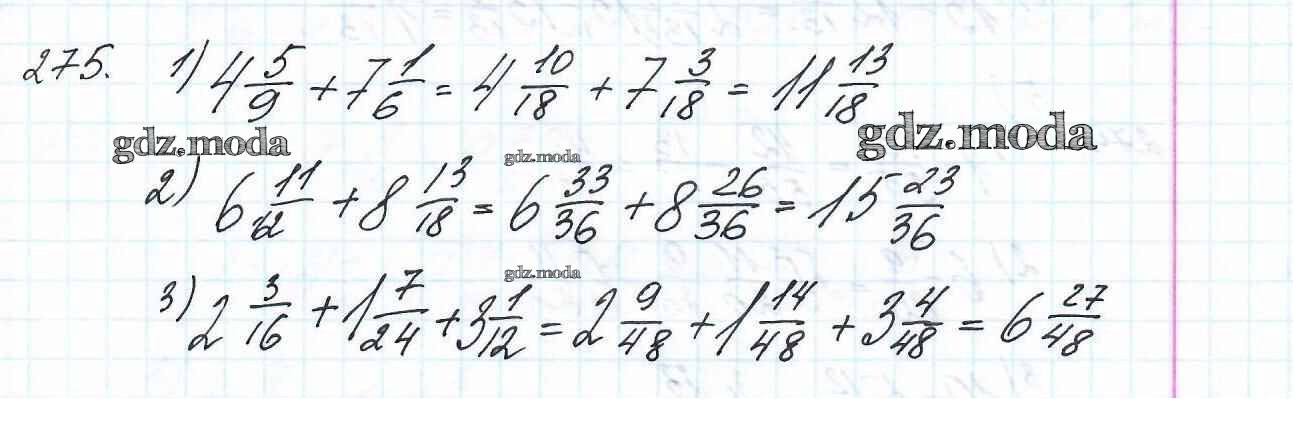 275. 1) 4 5/9 + 7 1/6 = 4 10/18 + 7 3/18 = 11 13/18
gdz.moda gdz.moda gdz.moda
2) 6 11/12 + 8 13/18 = 6 33/36 + 8 26/36 = 15 23/36
gdz.moda
3) 2 3/16 + 1 7/24 + 3 1/12 = 2 9/48 + 1 14/48 + 3 4/48 = 6 27/48